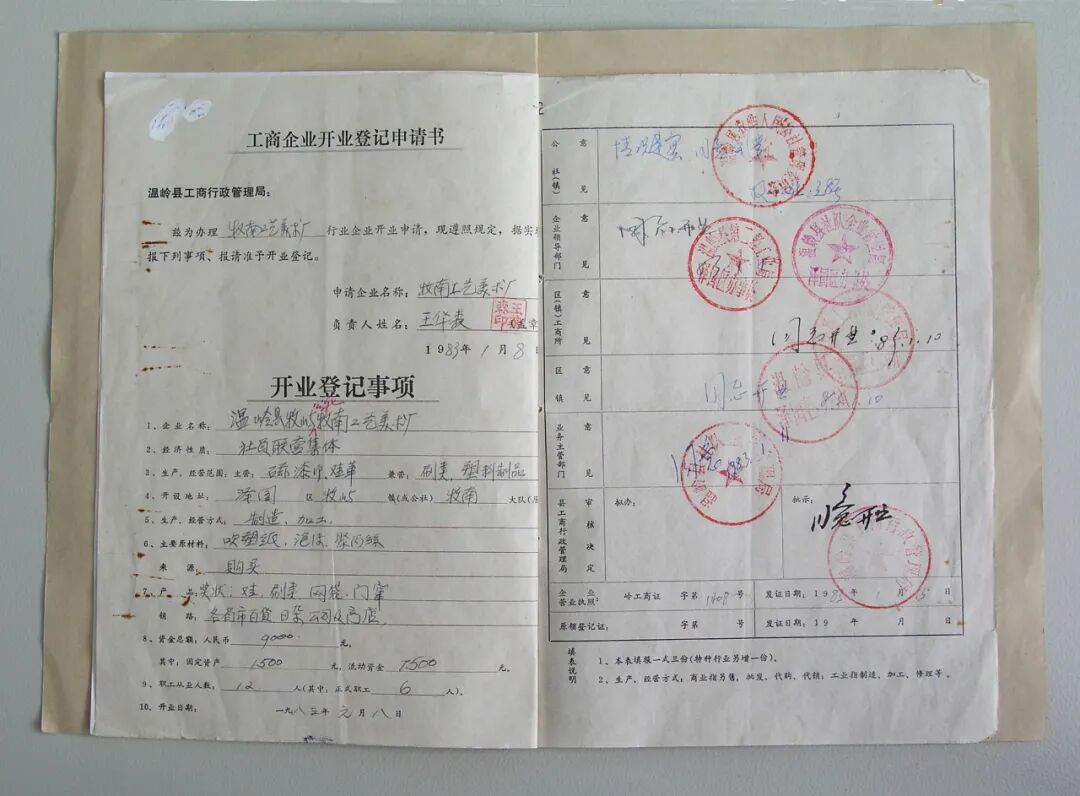 工商企业开业登记申请书
温岭县工商行政管理局：
兹为办理 牧南工艺美术厂 行业企业开业申请，现遵照规定，据实
报下列事项、报请准予开业登记。
申请企业名称：牧南工艺美术厂
负责人姓名：王华森 (盖章
1983年1月8日
开业登记事项
1、企业名称：温岭县牧屿牧南工艺美术厂
2、经济性质：社员联营集体
3、生产、经营范围：主营： 兼营：刷类、塑料制品
4、开设地址：泽国 区 牧屿 镇(或公社) 牧南 大队(
5、生产、经营方式：制造、加工.
6、主要原材料：吹塑纸、泡沫、
来源：购买
7、产品：奖状、刷类 网袋、门帘
销路：各省市百货日杂公司及商店.
8、资金总额：人民币 9000 元。
其中：固定资产 1500 元，流动资金 7500 元。
9、职工从业人数：12 人(其中：正式职工 6 人)。
10、开业日期：一九八三年元月八日
公社(镇)意见 情况属实 同意
企业领导部门意见 同意开业
区(镇)工商所意见 同意开业：83.1.10
区镇意见 同意开业 83.1.10
业务主管部门意见 同意 1983.1.11
县工商行政管理局审核决定 拟办： 批示：同意开业
企业营业执照： 岭工商证 字第 号 发证日期：1983年1月 日
原领登记证： 字第 号 发证日期：19 年 月 日
填表说明
1、本表填报一式三份(特种行业另增一份)。
2、生产、经营方式：商业指另售，批发、代购、代销；工业指制造、加工、修理等。